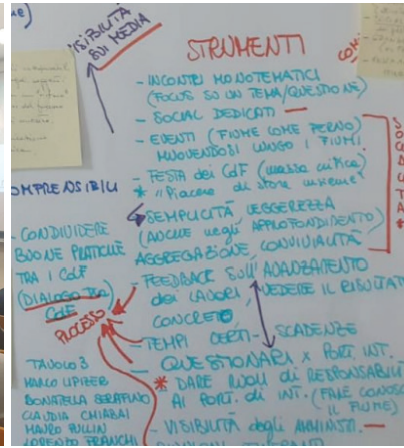 VISIBILITÀ
SUI MEDIA
STRUMENTI
- INCONTRI MONOTEMATICI
(FOCUS SU UN TEMA/QUESTIONE)
- SOCIAL DEDICATI
- EVENTI (FIUME COME PERNO)
MUOVENDOSI LUNGO I FIUMI
- FESTA dei CdF (massa critica)
* "Piacere di stare insieme"
SEMPLICITÀ LEGGEREZZA
(ANCHE negli APPROFONDIMENTO)
AGGREGAZIONE, CONVIVIALITÀ
- FEEDBACK SULL'AVANZAMENTO
dei LAVORI, VEDERE IL RISULTAT
CONCRETO
- TEMPI CERTI - SCADENZE
- QUESTIONARI x PORT. INT.
* DARE RUOLI di RESPONSABILI
AI PORT. di INT. (FARE CONOSC
IL FIUME)
- VISIBILITÀ degli AMMINIST.
OMPRENSIBILI
- CONDIVIDERE
BUONE PRATICHE
TRA I CdF
(DIALOGO TRA
CdF
PROCESSO
TAVOLO 3
MARCO LIPIZER
DONATELLA SERAFINO
CLAUDIA CHIABAI
LORENZO FRANCHI